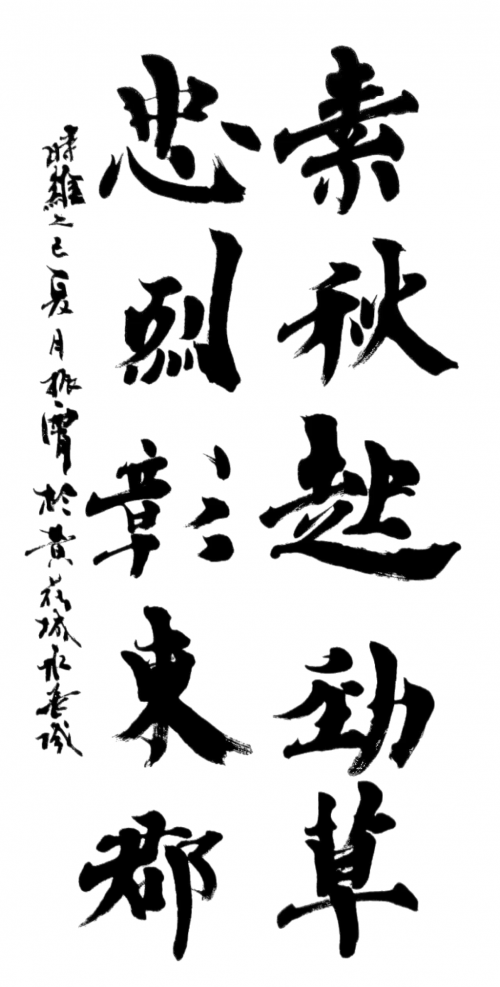 素秋勁草
忠烈彰東郡
時維乙巳夏月振於黃花城水識